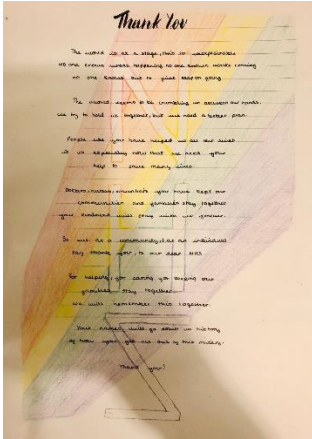 Thank You
The world is at a stage, this is unexplainable
no one knows what's happening no one knows what's coming
no one knows but to just keep on going
The world seems to be crumbling in between our hands.
we try to hold it together, but we need a better plan.
People like you have helped us all our lives
it is especially now that we need your
help to save many lives
Doctors, nurses, you have kept our
communities and families stay together
your kindness will stay with us forever.
So not as a community, but as an individual
Say thank you, to our dear NHS
For helping, for caring for keeping our
families stay together
we will remember this together
Your names will go down in history
of how you got us out of this misery.
Thank you!